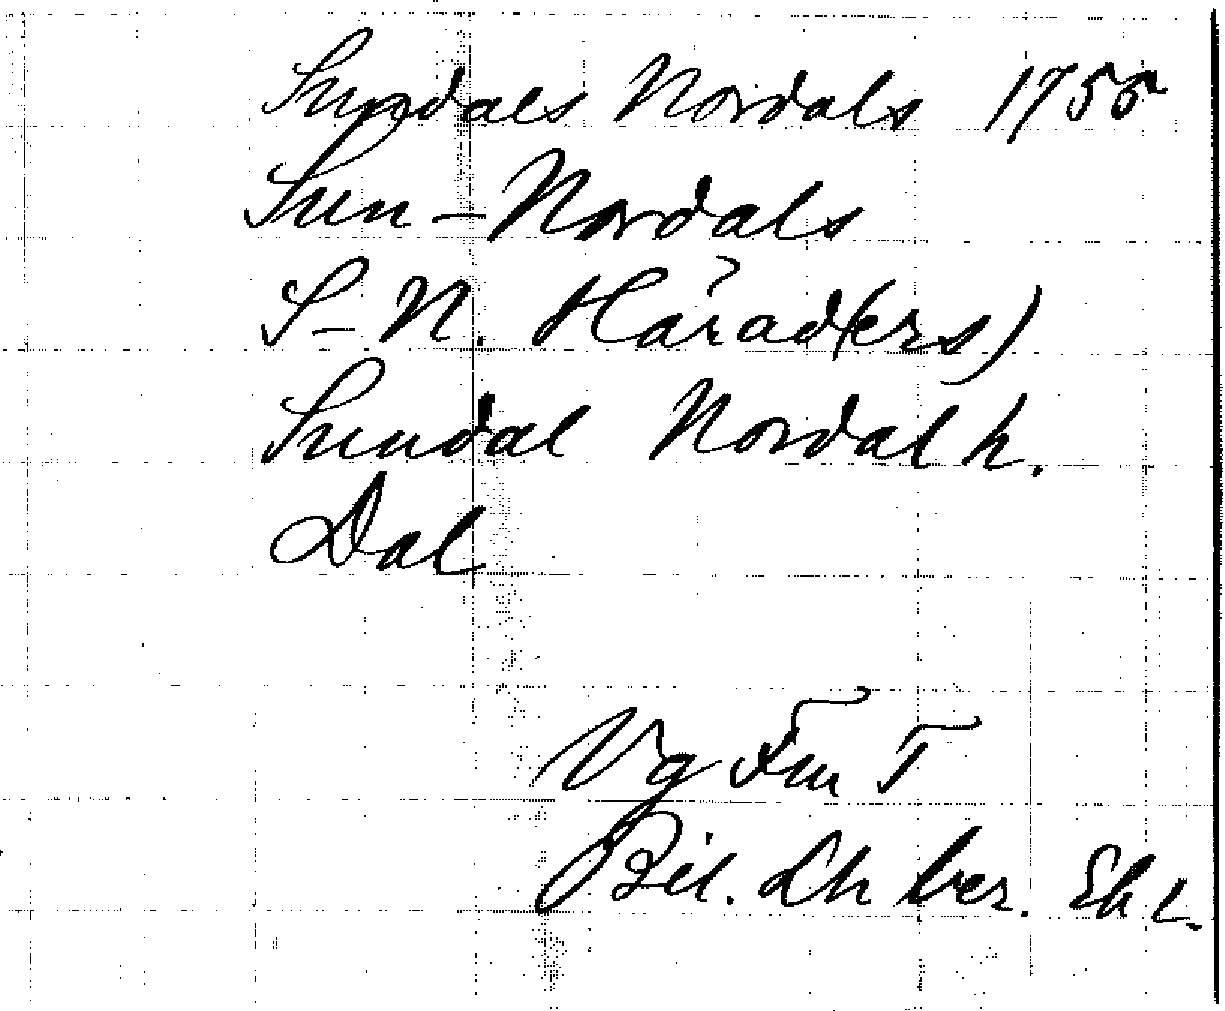 Sundals Nordals 1755
Sun-Nordals
S-N. Härad(ers)
Sundal Nordal h.
Dal
Vg Fm T
Bil. Lh ber.